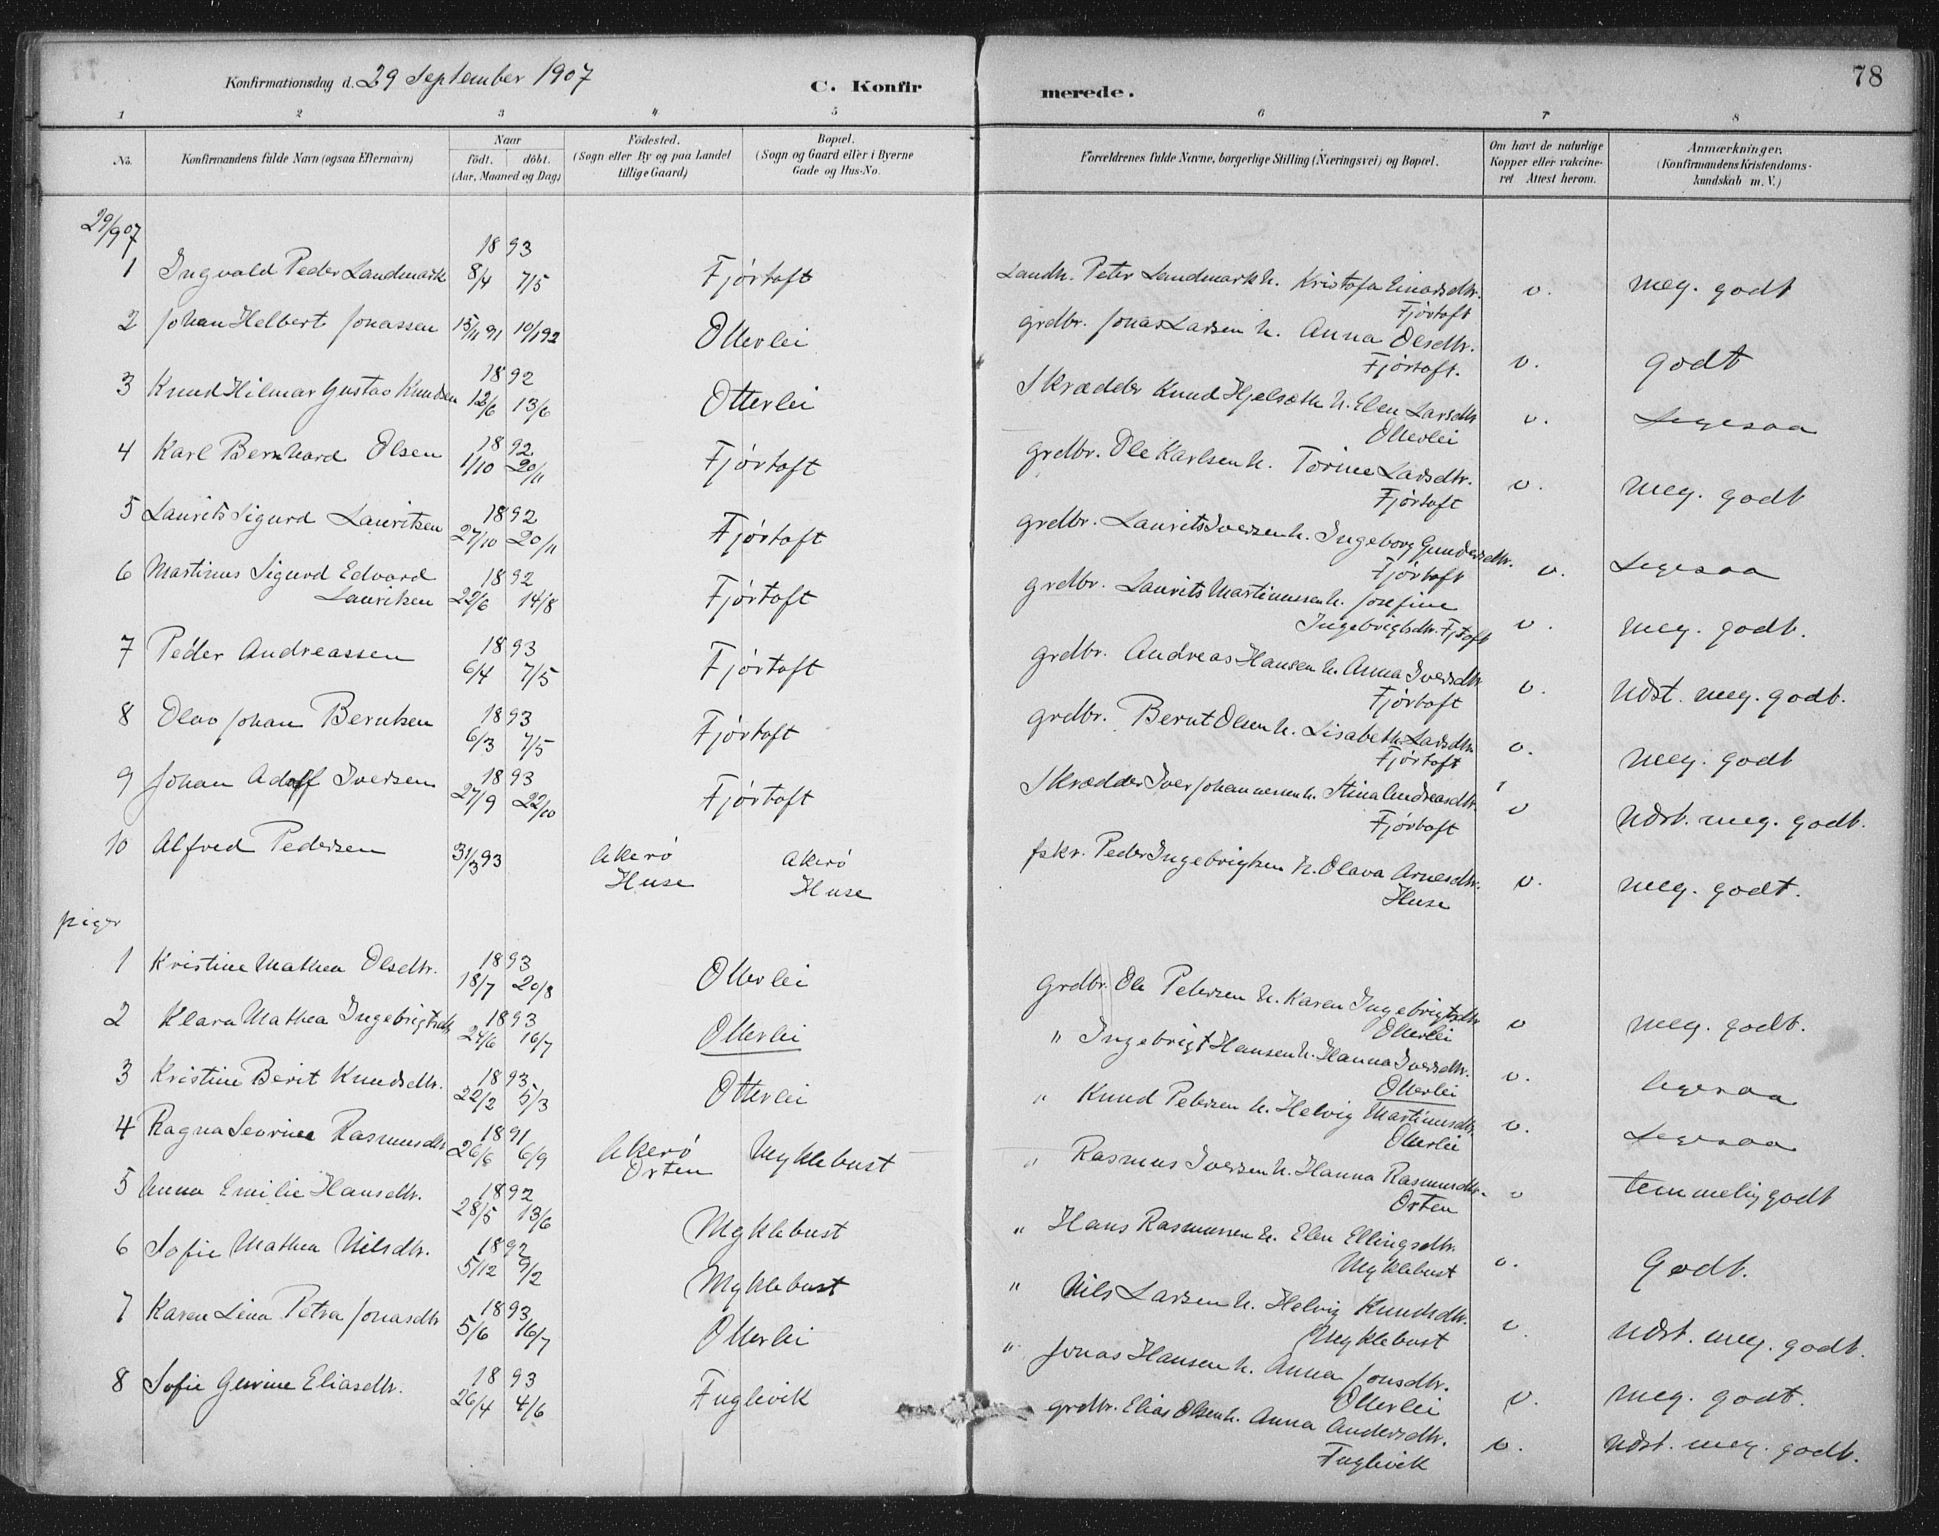 Konfirmationsdag d. 29 September 1907
C. Konfirmerede.
78
1 2 3 4 5 6 7 8
No.
Konfirmandens fulde Navn (ogsaa Efternavn)
Naar
födt. döbt.
(Aar, Maaned og Dag)
Födested.
(Sogn eller By og paa Landet
tillige Gaard)
Bopæl.
(Sogn og Gaard eller i Byerne
Gade og Hus-No.
Forældrenes fulde Navne, borgerlige Stilling (Næringsvei) og Bopæl.
Om havt de naturlige
Kopper eller vakcine-
ret Attest herom.
Anmærkninger.
(Konfirmandens Kristendoms-
kundskab m. V.)
29/9 07
1893
1 Ingvald Peder Landmark 8/4 7/5 Fjørtoft Landh. Peter Landmark h. Kristofa Einarsdtr. Fjørtoft v. meg. godt
2 Johan Helbert Jonassen 15/11 91 10/1 92 Otterlei grdbr. Jonas Larsen h. Anna Olsdtr. Fjørtoft. v. godt
1892
3 Knud Hilmar Gustav Knudsen 12/6 13/6 Otterlei Skrædder Knud Hjelseth h. Elen Larsdtr Otterlei v. Ligesaa
1892
4 Karl Bernhard Olsen 1/10 20/11 Fjørtoft grdbr. Ole Karlsen h. Torine Larsdtr. Fjørtoft v. meg. godt
1892
5 Laurits Sigurd Lauritsen 27/10 20/11 Fjørtoft grdbr. Laurits Iversen h. Ingeborg Gundersdtr. Fjørtoft v. Ligesaa
1892
6 Martinus Sigurd Edvard Lauritsen 22/6 14/8 Fjørtoft grdbr. Laurits Martinussen h. Josefine Ingebrigtsdtr. Fjtoft v. meg. godt.
1893
7 Peder Andreassen 6/4 7/5 Fjørtoft grdbr. Andreas Hansen h. Anna Iversdtr Fjørtoft v. Udst. meg. godt.
1893
8 Olav Johan Berntsen 6/3 7/5 Fjørtoft grdbr. Bernt Olsen h. Lisabeth Larsdtr. Fjørtoft v. meg. godt
1893
9 Johan Adolf Iversen 27/9 22/10 Fjørtoft Skrædder Iver Johannesen h. Stina Andreasdtr. Fjørtoft v Udst. meg. godt.
10 Alfred Pedersen 31/3 93 Akerø Huse Akerø Huse fskr. Peder Ingebrigtsen h. Olava Arnesdtr. Huse v. meg. godt.
piger
1893
1 Kristine Mathea Olsdtr. 18/7 20/8 Otterlei grdbr. Ole Petersen h. Karen Ingebrigtsdtr Otterlei v meg. godt.
1893
2 Klara Mathea Ingebrigtsdtr 24/6 16/7 Otterlei " Ingebrigt Hansen h. Hanna Iversdtr. Otterlei v. ligesaa
1893
3 Kristine Berit Knudsdtr. 22/2 5/3 Otterlei " Knud Petersen h. Helvig Martinusdtr. Otterlei v. Ligesaa
1891
4 Ragna Sevrine Rasmusdtr 26/6 6/9 Akerø Orten Myklebust " Rasmus Iversen h. Hanna Rasmusdtr. Orten v temmelig godt
1892
5 Anna Emilie Hansdtr. 28/5 13/6 Myklebust " Hans Rasmussen h. Elen Ellingsdtr. Myklebust v. Godt.
1892
6 Sofie Mathea Nilsdtr. 5/12 9/2 Myklebust " Nils Larsen h. Helvig Knudsdtr. Myklebust v. Udst. meg. godt.
1893
7 Karen Lina Petra Jonasdtr 5/6 16/7 Otterlei " Jonas Hansen h. Anna Jonsdtr. Otterlei v. meg. godt.
1893
8 Sofie Gurine Eliasdtr. 26/4 4/6 Fuglevik grdbr. Elias Olsen h. Anna Andersdtr. Fuglevik v. Udst. meg. godt.